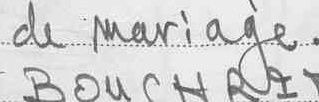 de mariage.
BOUCHRIT